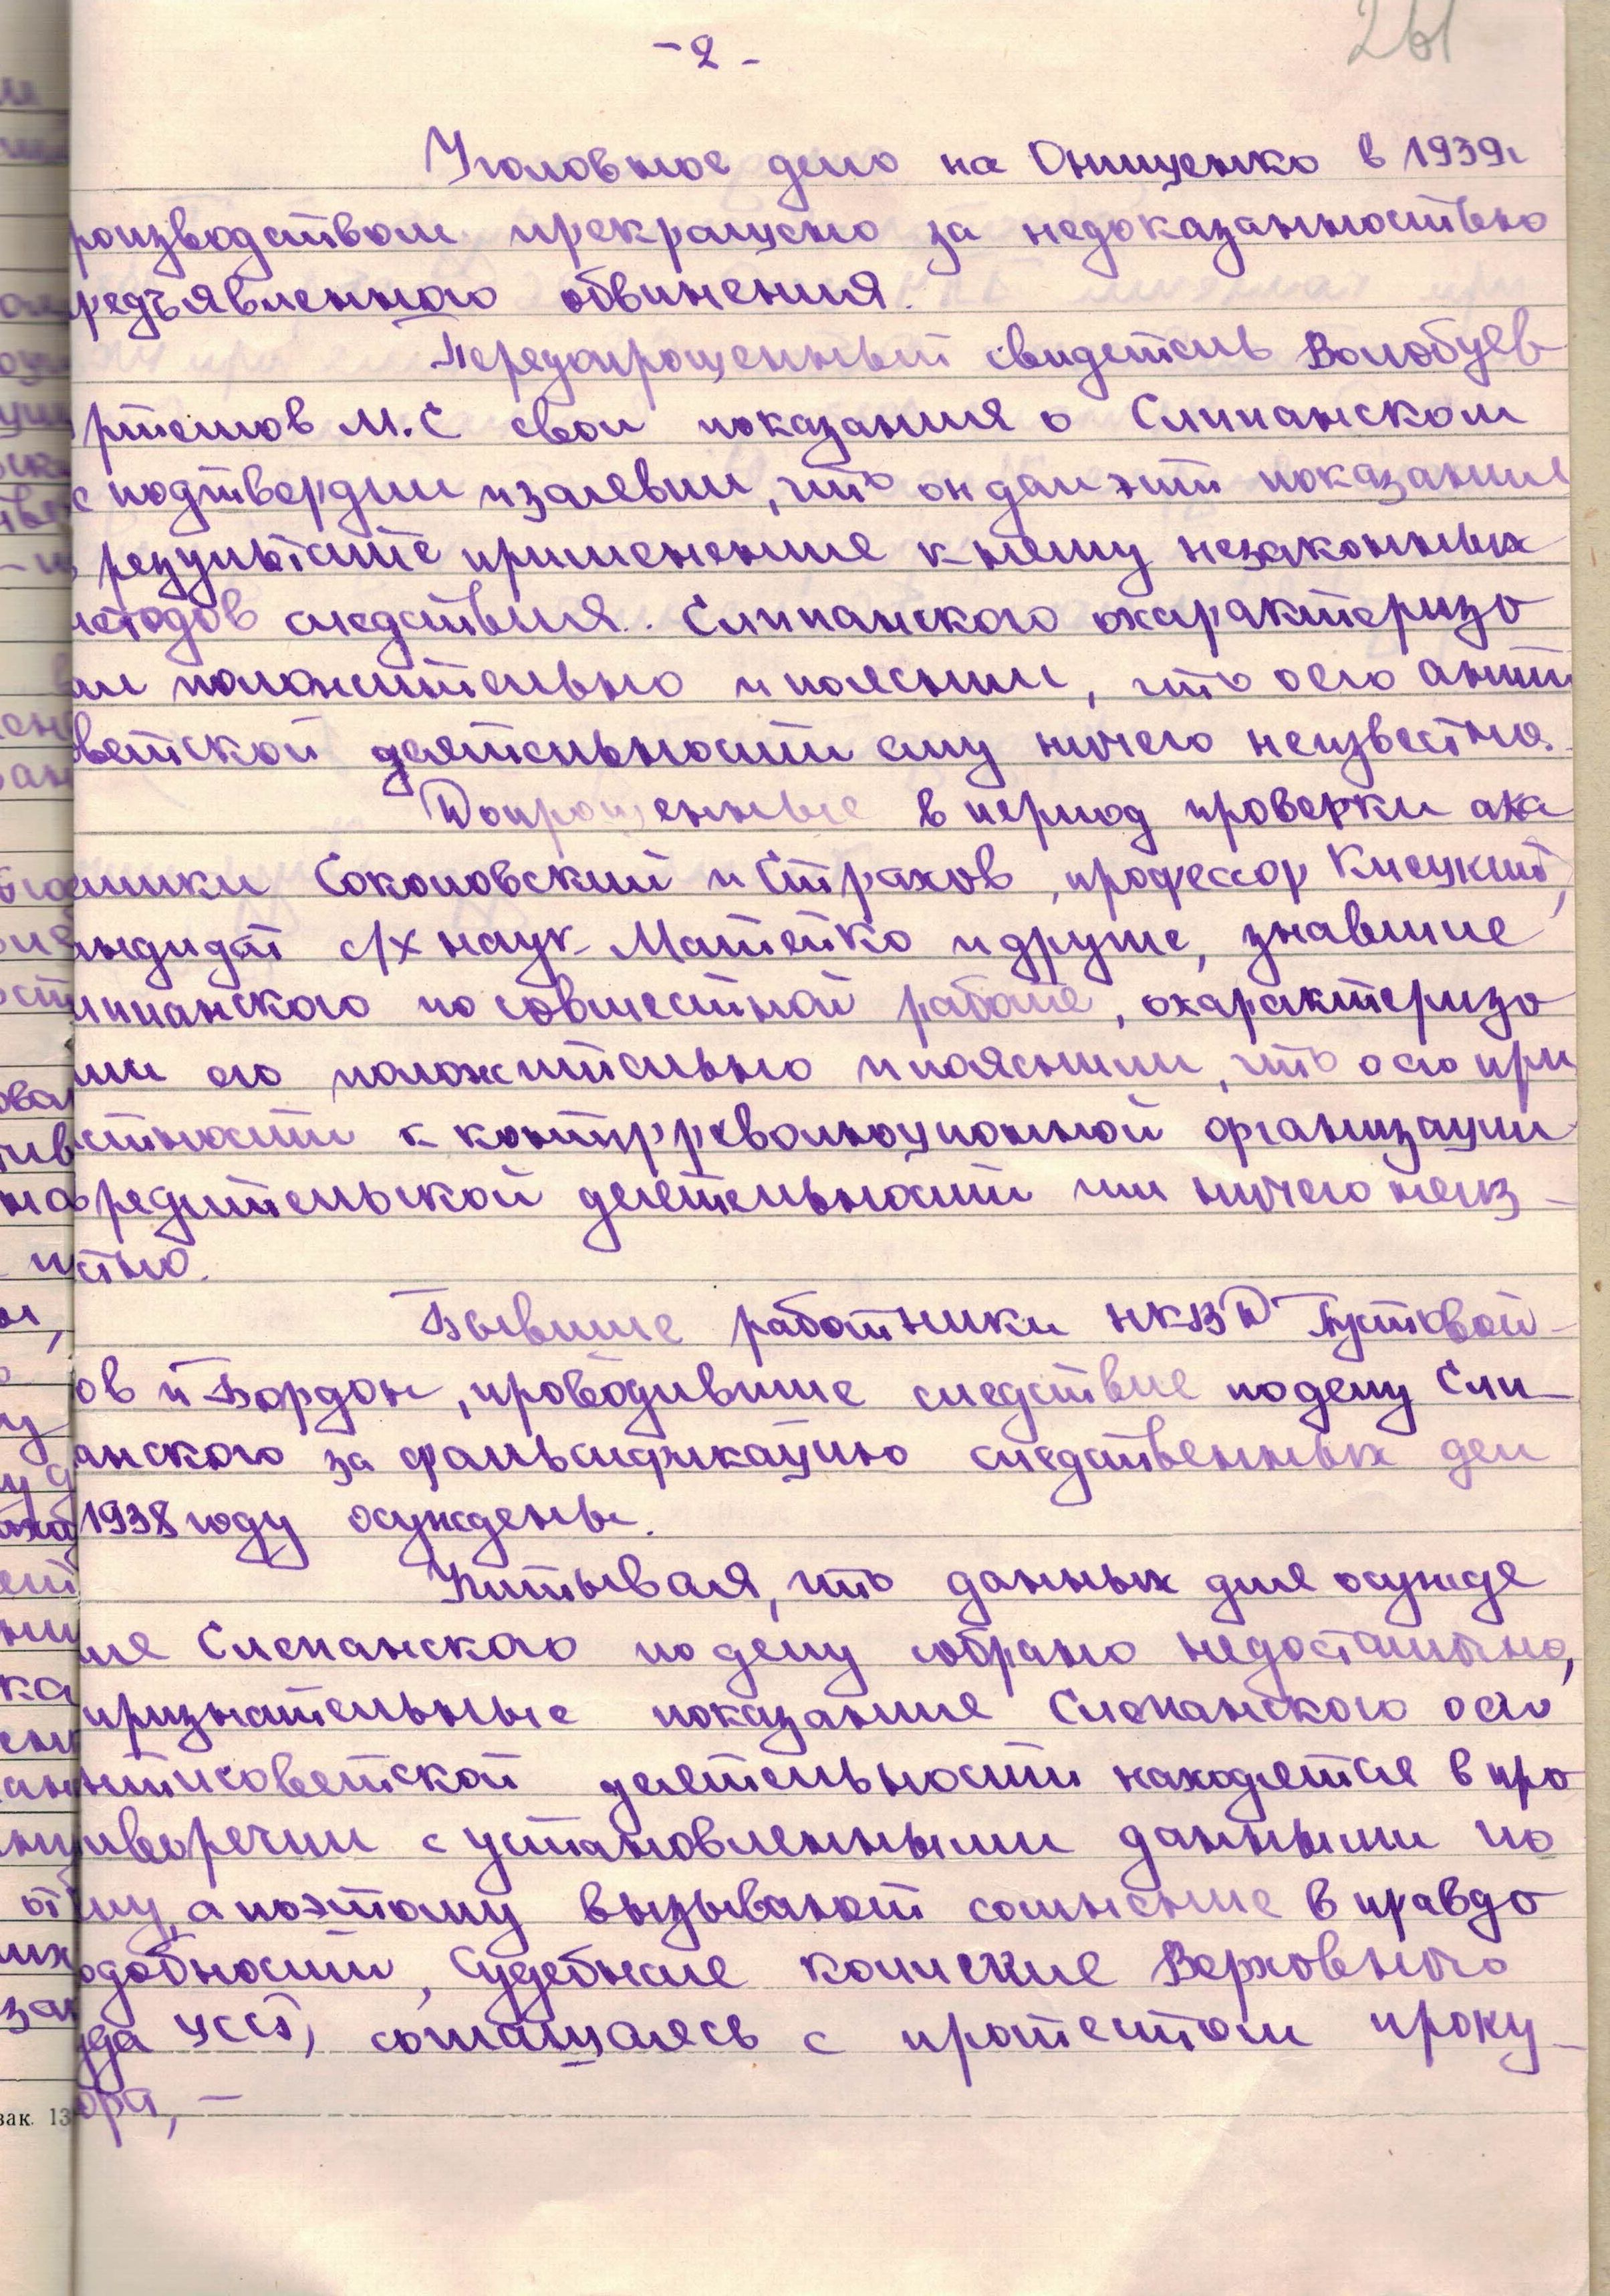 - 2 -
261
Уголовное дело на Онищенко в 1939г
роизводством прекращено за недоказанностью
редъявленного обвинения.
Передопрошенный свидетель Волобуев
ртемов М.С свои показания о Слипанском
е подтвердил и заявил, что он дал эти показания
результате применения к нему незаконных
етодов следствия. Слипанского охарактеризо
ал положительно и пояснил, что о его анти
ветской деятельности ему ничего неизвестно.
Допрошенные в период проверки ака
емики Соколовский и Страхов, профессор
андидат с/х наук Матейко и другие, знавшие
липанского по совместной работе, охарактеризо
ли его положительно и пояснили, что о его при
стности к контрреволюционной организации
редительской деятельности им ничего неиз-
стно.
Бывшие работники НКВД Пустовой-
ов и Бордон, проводившие следствие по делу Сли-
анского за фальсификацию следственных дел
1938 году осуждены.
Учитывая, что данных для осужде
ия Слепанского по делу собрано недостаточно,
признательные показания Слепанского о его
антисоветской деятельности находятся в про
иворечии с установленными данными по
лу, а поэтому вызывают сомнение в правдо
одобности, Судебная коллегия Верховного
уда УССР, соглашаясь с протестом проку-
ора, —
зак. 13